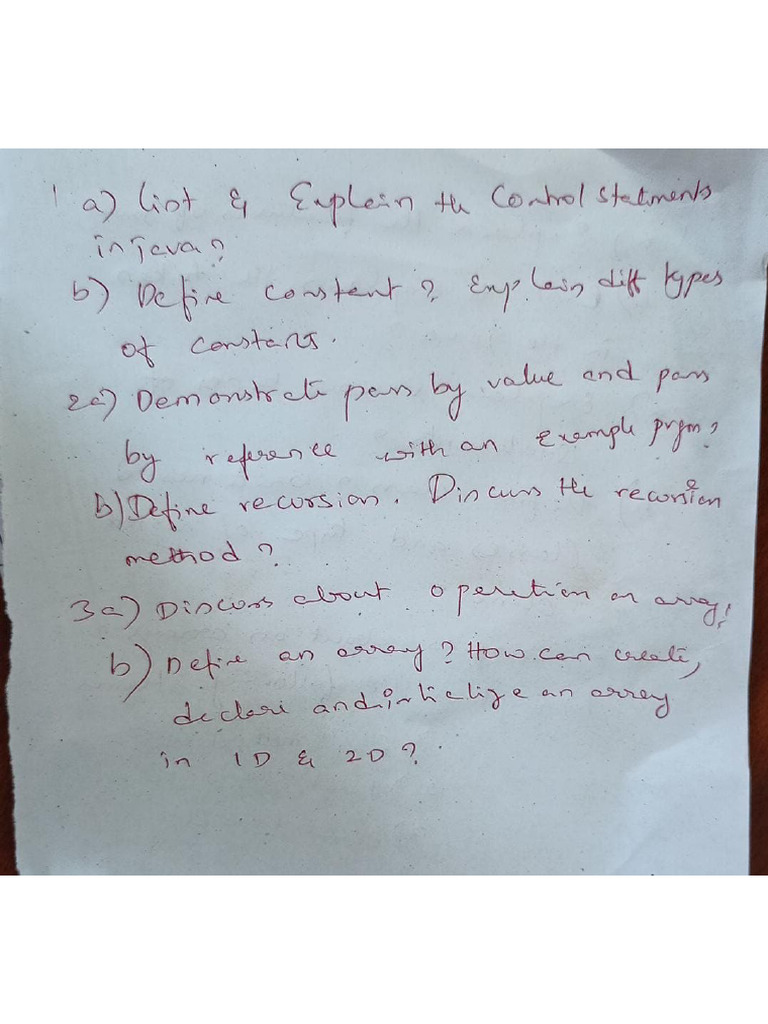 1 a) List & Explain the Control Statments
in java?
b) Define constant? Explain diff types
of constants.
2a) Demonstrate pass by value and pass
by reference with an example prgm?
b) Define recursion. Discuss the recursion
method?
3a) Discuss about operation on array.
b) Define an array? How can create,
declare and initialize an array
in 1D & 2D?